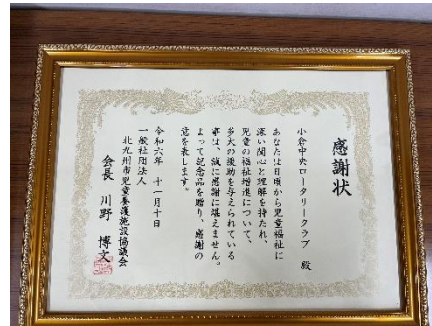 感謝状
小倉中央ロータリークラブ 殿
あなたは日頃から児童福祉に
深い関心と理解を持たれ、
児童の福祉増進について、
多大の援助を与えられている
事は、誠に感謝に堪えません。
よって記念品を贈り、感謝の
意を表します。
令和六年 十一月十日
一般社団法人
北九州市児童養護施設協議会
会長 川野 博文